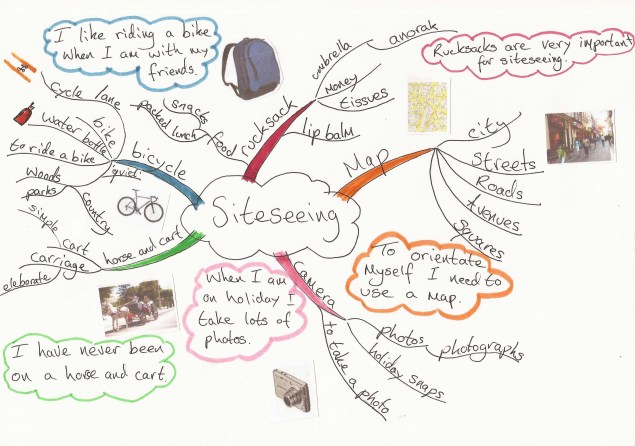 I like riding a bike
when I am with my
friends.
Rucksacks are very important
for siteseeing.
Siteseeing
rucksack
umbrella
anorak
money
tissues
lip balm
food
snacks
packed lunch
Map
city
Streets
Roads
Avenues
Squares
To orientate
myself I need to
use a map.
Camera
photos
photographs
holiday snaps
to take a photo
When I am
on holiday I
take lots of
photos.
horse and cart
cart
simple
carriage
elaborate
I have never been
on a horse and cart.
bicycle
bike
cycle lane
water bottle
to ride a bike
quiet
woods
parks
country